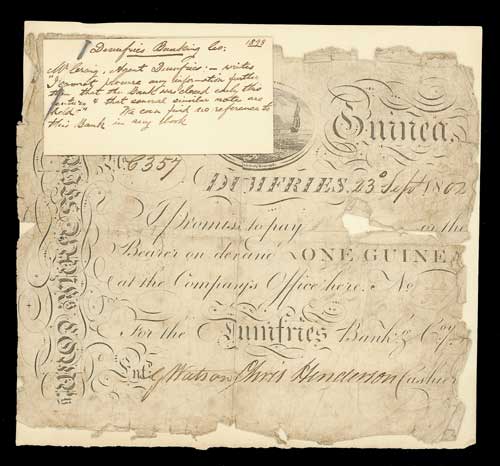 Dumfries Banking Co:
1829
Mr Craig, Agent Dumfries:- writes
"I cannot procure any information further
than that the Bank was closed early this
century & that several similar notes are
held" We can find no reference to
this Bank in any book
Guinea.
C357
DUMFRIES, 23d Sept 1802
I promise to pay or the
Bearer on demand ONE GUINEA
at the Company's Office here. No
For the Dumfries Bankg Coy
Ent. G Watson Chris Henderson Cashier